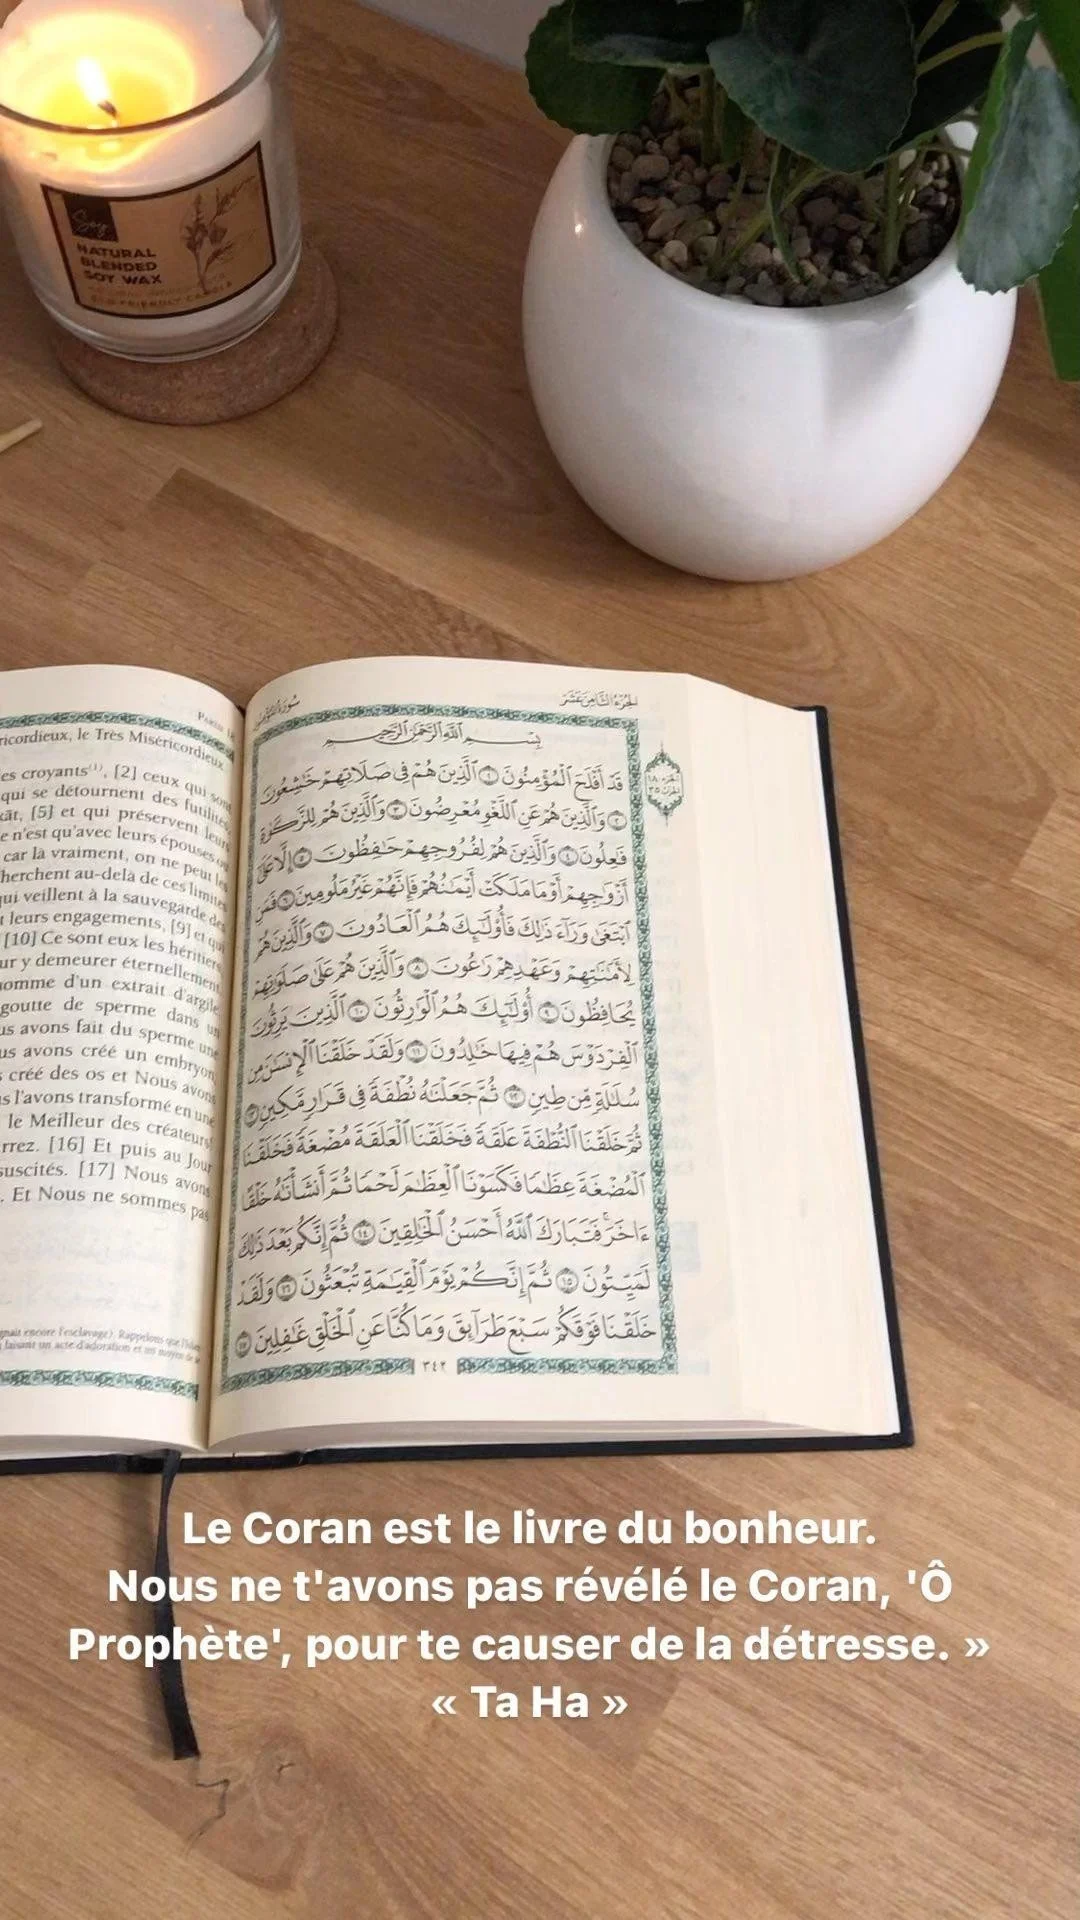 NATURAL
BLENDED
SOY WAX
ECO-FRIENDLY CANDLE
ricordieux, le Très Miséricordieux.
es croyants⁽¹⁾, [2] ceux qui sont
qui se détournent des futilités,
kāt, [5] et qui préservent leurs
e n'est qu'avec leurs épouses ou
car là vraiment, on ne peut les
herchent au-delà de ces limites
qui veillent à la sauvegarde des
t leurs engagements, [9] et qui
[10] Ce sont eux les héritiers,
ur y demeurer éternellement.
omme d'un extrait d'argile,
goutte de sperme dans un
us avons fait du sperme une
us avons créé un embryon;
s créé des os et Nous avons
s l'avons transformé en une
le Meilleur des créateurs!
rrez. [16] Et puis au Jour
suscités. [17] Nous avons
. Et Nous ne sommes pas
gnait encore l'esclavage). Rappelons que l'Islam
faisant un acte d'adoration et un moyen de
الجزء الثامن عشر
سورة المؤمنون
بِسْمِ اللَّهِ الرَّحْمَٰنِ الرَّحِيمِ
قَدْ أَفْلَحَ الْمُؤْمِنُونَ ١ الَّذِينَ هُمْ فِي صَلَاتِهِمْ خَاشِعُونَ
٢ وَالَّذِينَ هُمْ عَنِ اللَّغْوِ مُعْرِضُونَ ٣ وَالَّذِينَ هُمْ لِلزَّكَوٰةِ
فَاعِلُونَ ٤ وَالَّذِينَ هُمْ لِفُرُوجِهِمْ حَافِظُونَ ٥ إِلَّا عَلَىٰ
أَزْوَاجِهِمْ أَوْ مَا مَلَكَتْ أَيْمَانُهُمْ فَإِنَّهُمْ غَيْرُ مَلُومِينَ ٦ فَمَنِ
ابْتَغَىٰ وَرَاءَ ذَٰلِكَ فَأُولَٰئِكَ هُمُ الْعَادُونَ ٧ وَالَّذِينَ هُمْ
لِأَمَانَاتِهِمْ وَعَهْدِهِمْ رَاعُونَ ٨ وَالَّذِينَ هُمْ عَلَىٰ صَلَوَاتِهِمْ
يُحَافِظُونَ ٩ أُولَٰئِكَ هُمُ الْوَارِثُونَ ١٠ الَّذِينَ يَرِثُونَ
الْفِرْدَوْسَ هُمْ فِيهَا خَالِدُونَ ١١ وَلَقَدْ خَلَقْنَا الْإِنسَانَ مِن
سُلَالَةٍ مِّن طِينٍ ١٢ ثُمَّ جَعَلْنَاهُ نُطْفَةً فِي قَرَارٍ مَّكِينٍ ١٣
ثُمَّ خَلَقْنَا النُّطْفَةَ عَلَقَةً فَخَلَقْنَا الْعَلَقَةَ مُضْغَةً فَخَلَقْنَا
الْمُضْغَةَ عِظَامًا فَكَسَوْنَا الْعِظَامَ لَحْمًا ثُمَّ أَنشَأْنَاهُ خَلْقًا
ءَاخَرَ فَتَبَارَكَ اللَّهُ أَحْسَنُ الْخَالِقِينَ ١٤ ثُمَّ إِنَّكُم بَعْدَ ذَٰلِكَ
لَمَيِّتُونَ ١٥ ثُمَّ إِنَّكُمْ يَوْمَ الْقِيَامَةِ تُبْعَثُونَ ١٦ وَلَقَدْ
خَلَقْنَا فَوْقَكُمْ سَبْعَ طَرَائِقَ وَمَا كُنَّا عَنِ الْخَلْقِ غَافِلِينَ ١٧
٣٤٢
الجزء ١٨
الحزب ٣٥
Le Coran est le livre du bonheur.
Nous ne t'avons pas révélé le Coran, 'Ô
Prophète', pour te causer de la détresse. »
« Ta Ha »